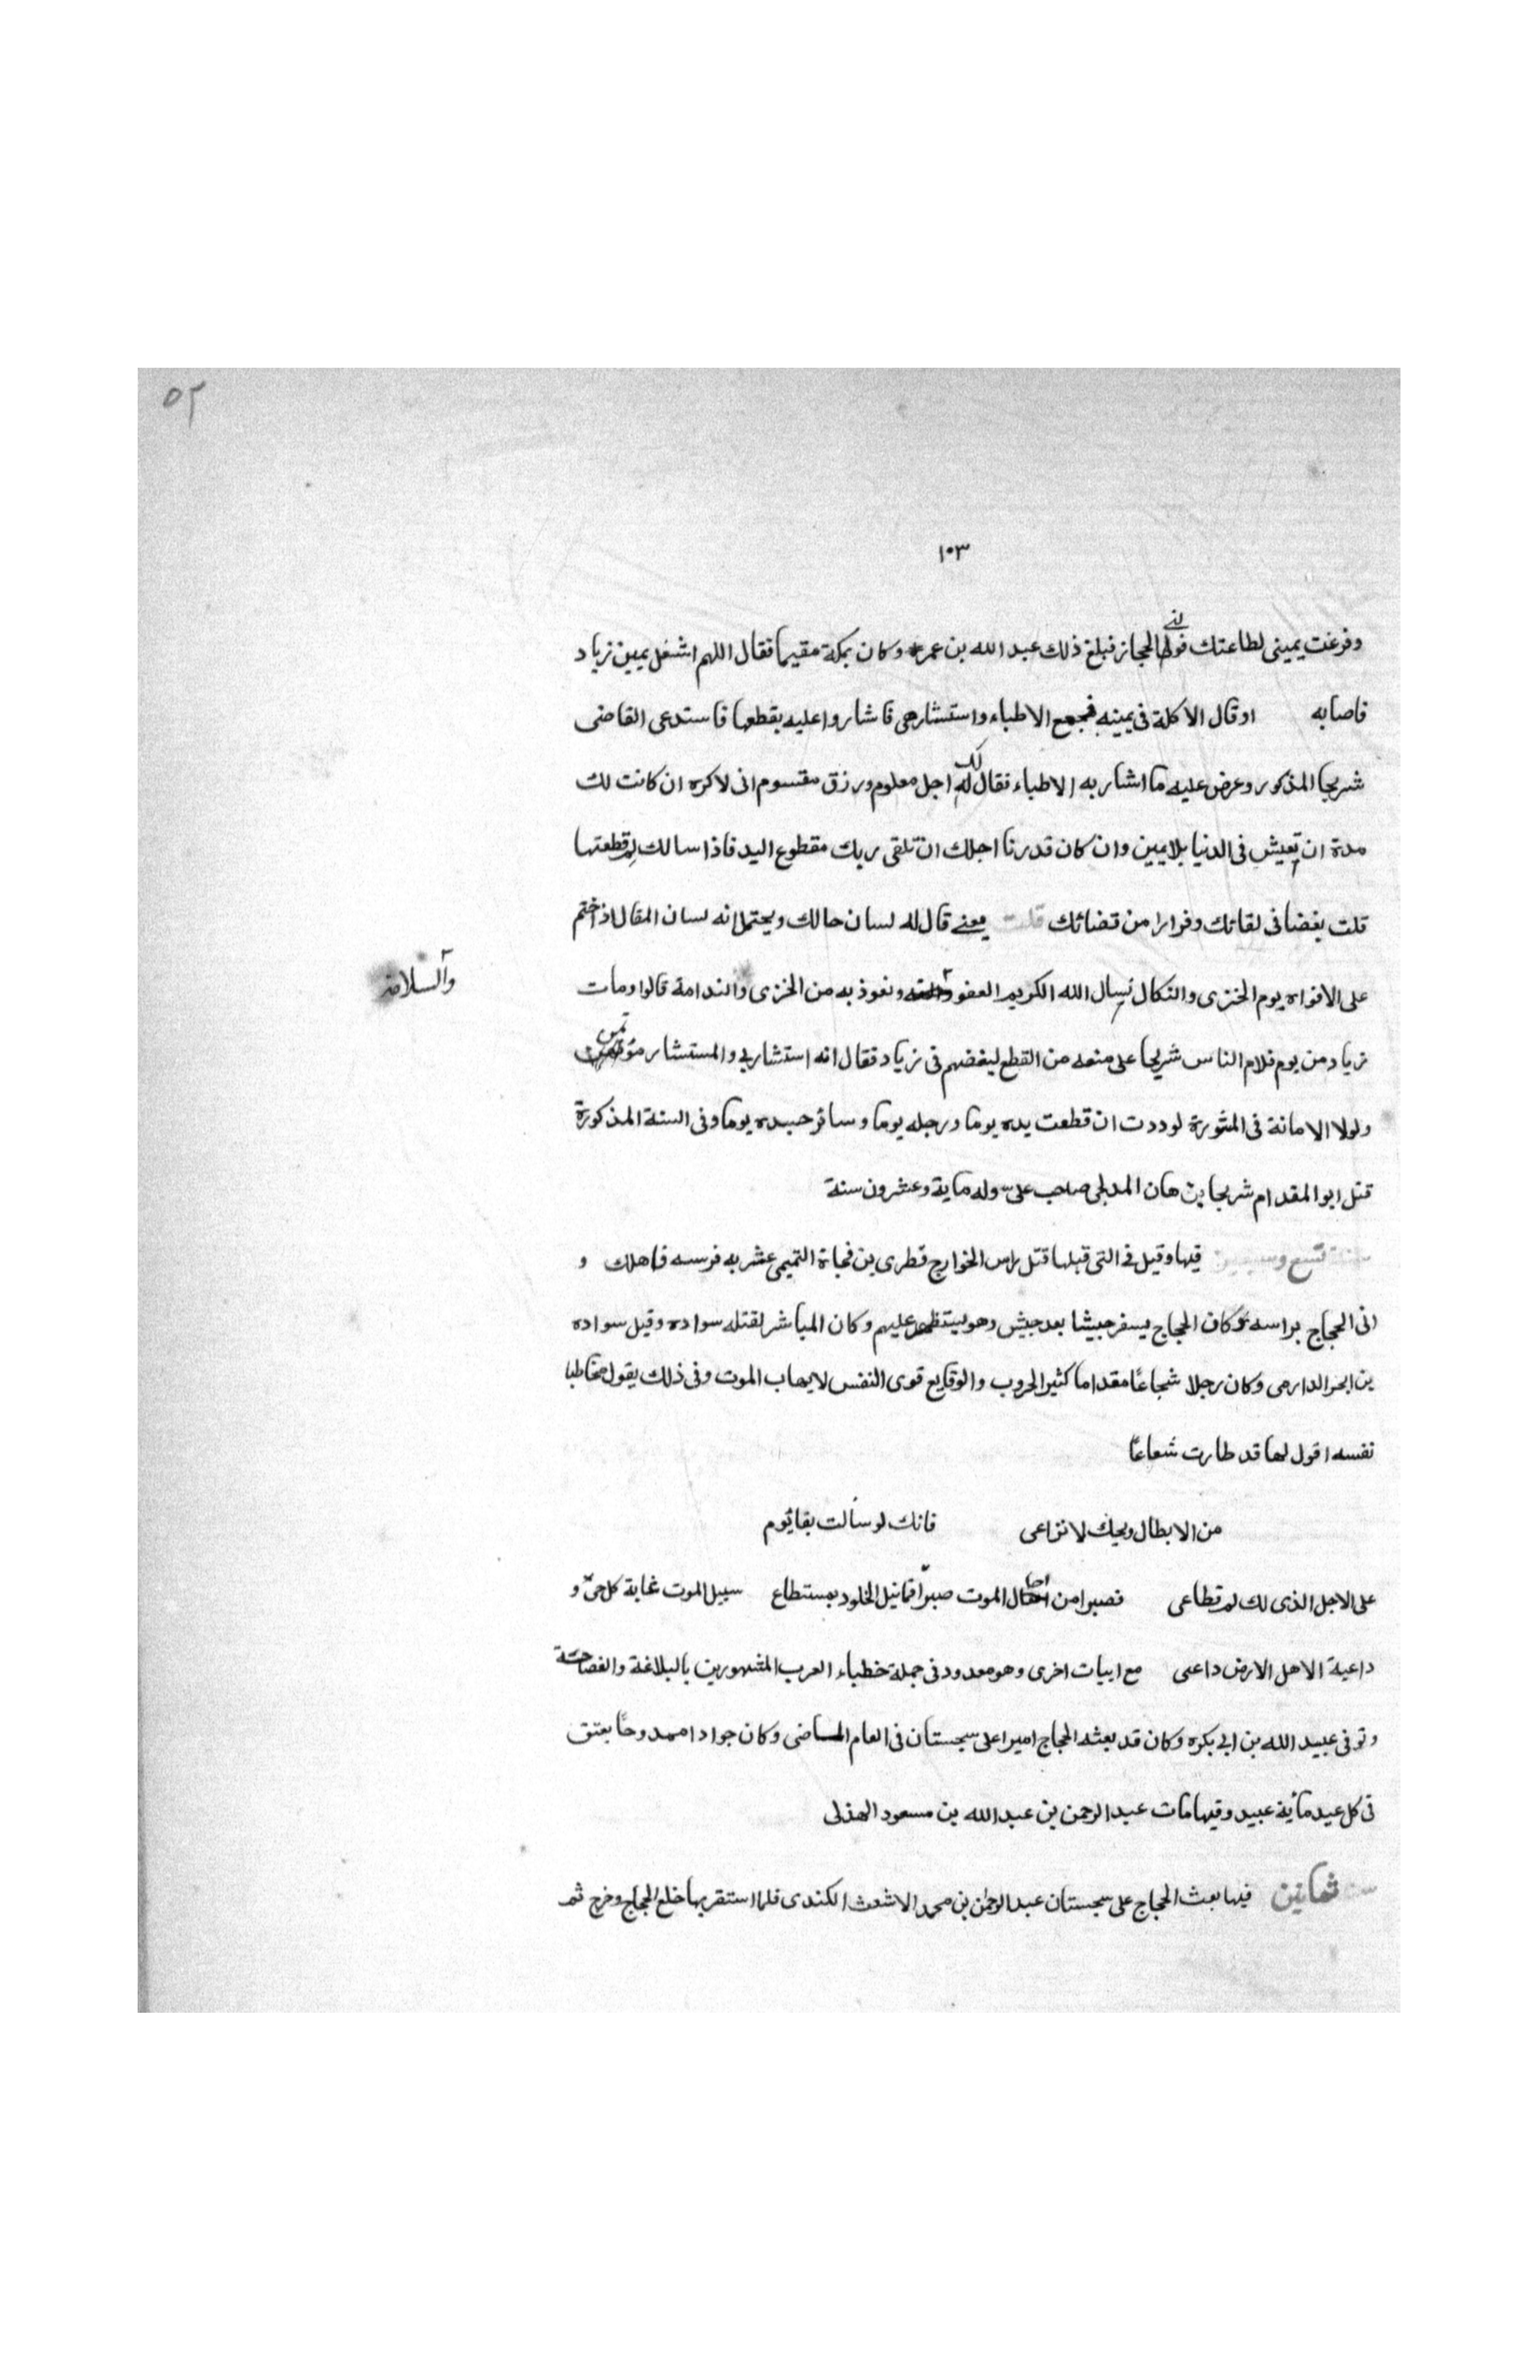 ٥٢
١٠٣
وفرغت يمينى لطاعتك فولنى الحجاز فبلغ ذلك عبد الله بن عمر وكان بمكة مقيما فقال اللهم اشغل يمين زياد
فاصابه اوقال الاكلة فى يمينه فجمع الاطباء واستشارهم فاشاروا عليه بقطعها فاستدعى القاضى
شريحا المذكور وعرض عليه ما اشار به الاطباء فقال لك اجل معلوم ورزق مقسوم انى لاكره ان كانت لك
مدة ان تعيش فى الدنيا بلا يمين وان كان قد دنا اجلك ان تلقى ربك مقطوع اليد فاذا سالك لم قطعتها
قلت بغضا فى لقائك وفرارا من قضائك قلت يعنے قال له لسان حالك ويحتمل انه لسان المقال اذا ختم
على الافواه يوم الخزى والنكال نسال الله الكريم العفو ونعوذ به من الخزى والندامة قالوا ومات
والسلامة
زياد من يوم فلام الناس شريحا على منعه من القطع لبغضهم فى زياد فقال انه استشارنى والمستشار مؤتمن
ولولا الامانة فى المشورة لوددت ان قطعت يده يوما ورجله يوما وسائر جسده يوما وفى السنة المذكورة
قتل ابو المقدام شريحا بن هان المدلجى صاحب على وله ماية وعشرون سنة
سنة تسع وسبعين فيها وقيل فى التى قبلها قتل راس الخوارج قطرى بن فجاة التميمى عثر به فرسه فاهلك و
اتى الحجاج براسه وكان الحجاج يسفر جيشا بعد جيش وهو يستظهر عليهم وكان المباشر لقتله سواده وقيل سواده
بن ابحر الدارمى وكان رجلا شجاعًا مقداما كثير الحروب والوقايع قوى النفس لا يهاب الموت وفى ذلك يقول مخاطبا
نفسه اقول لها قد طارت شعاعًا
من الابطال ويحك لا نزاعى فانك لو سألت بقا يوم
على الاجل الذى لك لم تطاعى فصبرا من الموت صبرًا فما نيل الخلود بمستطاع سبيل الموت غاية كل حىّ و
داعية الاهل الارض داعى مع ابيات اخرى وهو معدود فى جملة خطباء العرب المشهورين بالبلاغة والفصاحة
وتوفى عبيد الله بن ابى بكره وكان قد بعثه الحجاج اميرا على سجستان فى العام الماضى وكان جوادا ممدوحًا يعتق
فى كل عيد مأية عبيد وفيها مات عبد الرحمن بن عبد الله بن مسعود الهذلى
سنة ثمانين فيها بعث الحجاج على سجستان عبد الرحمن بن محمد الاشعث الكندى فلما استقر بها خلع الحجاج وخرج ثم